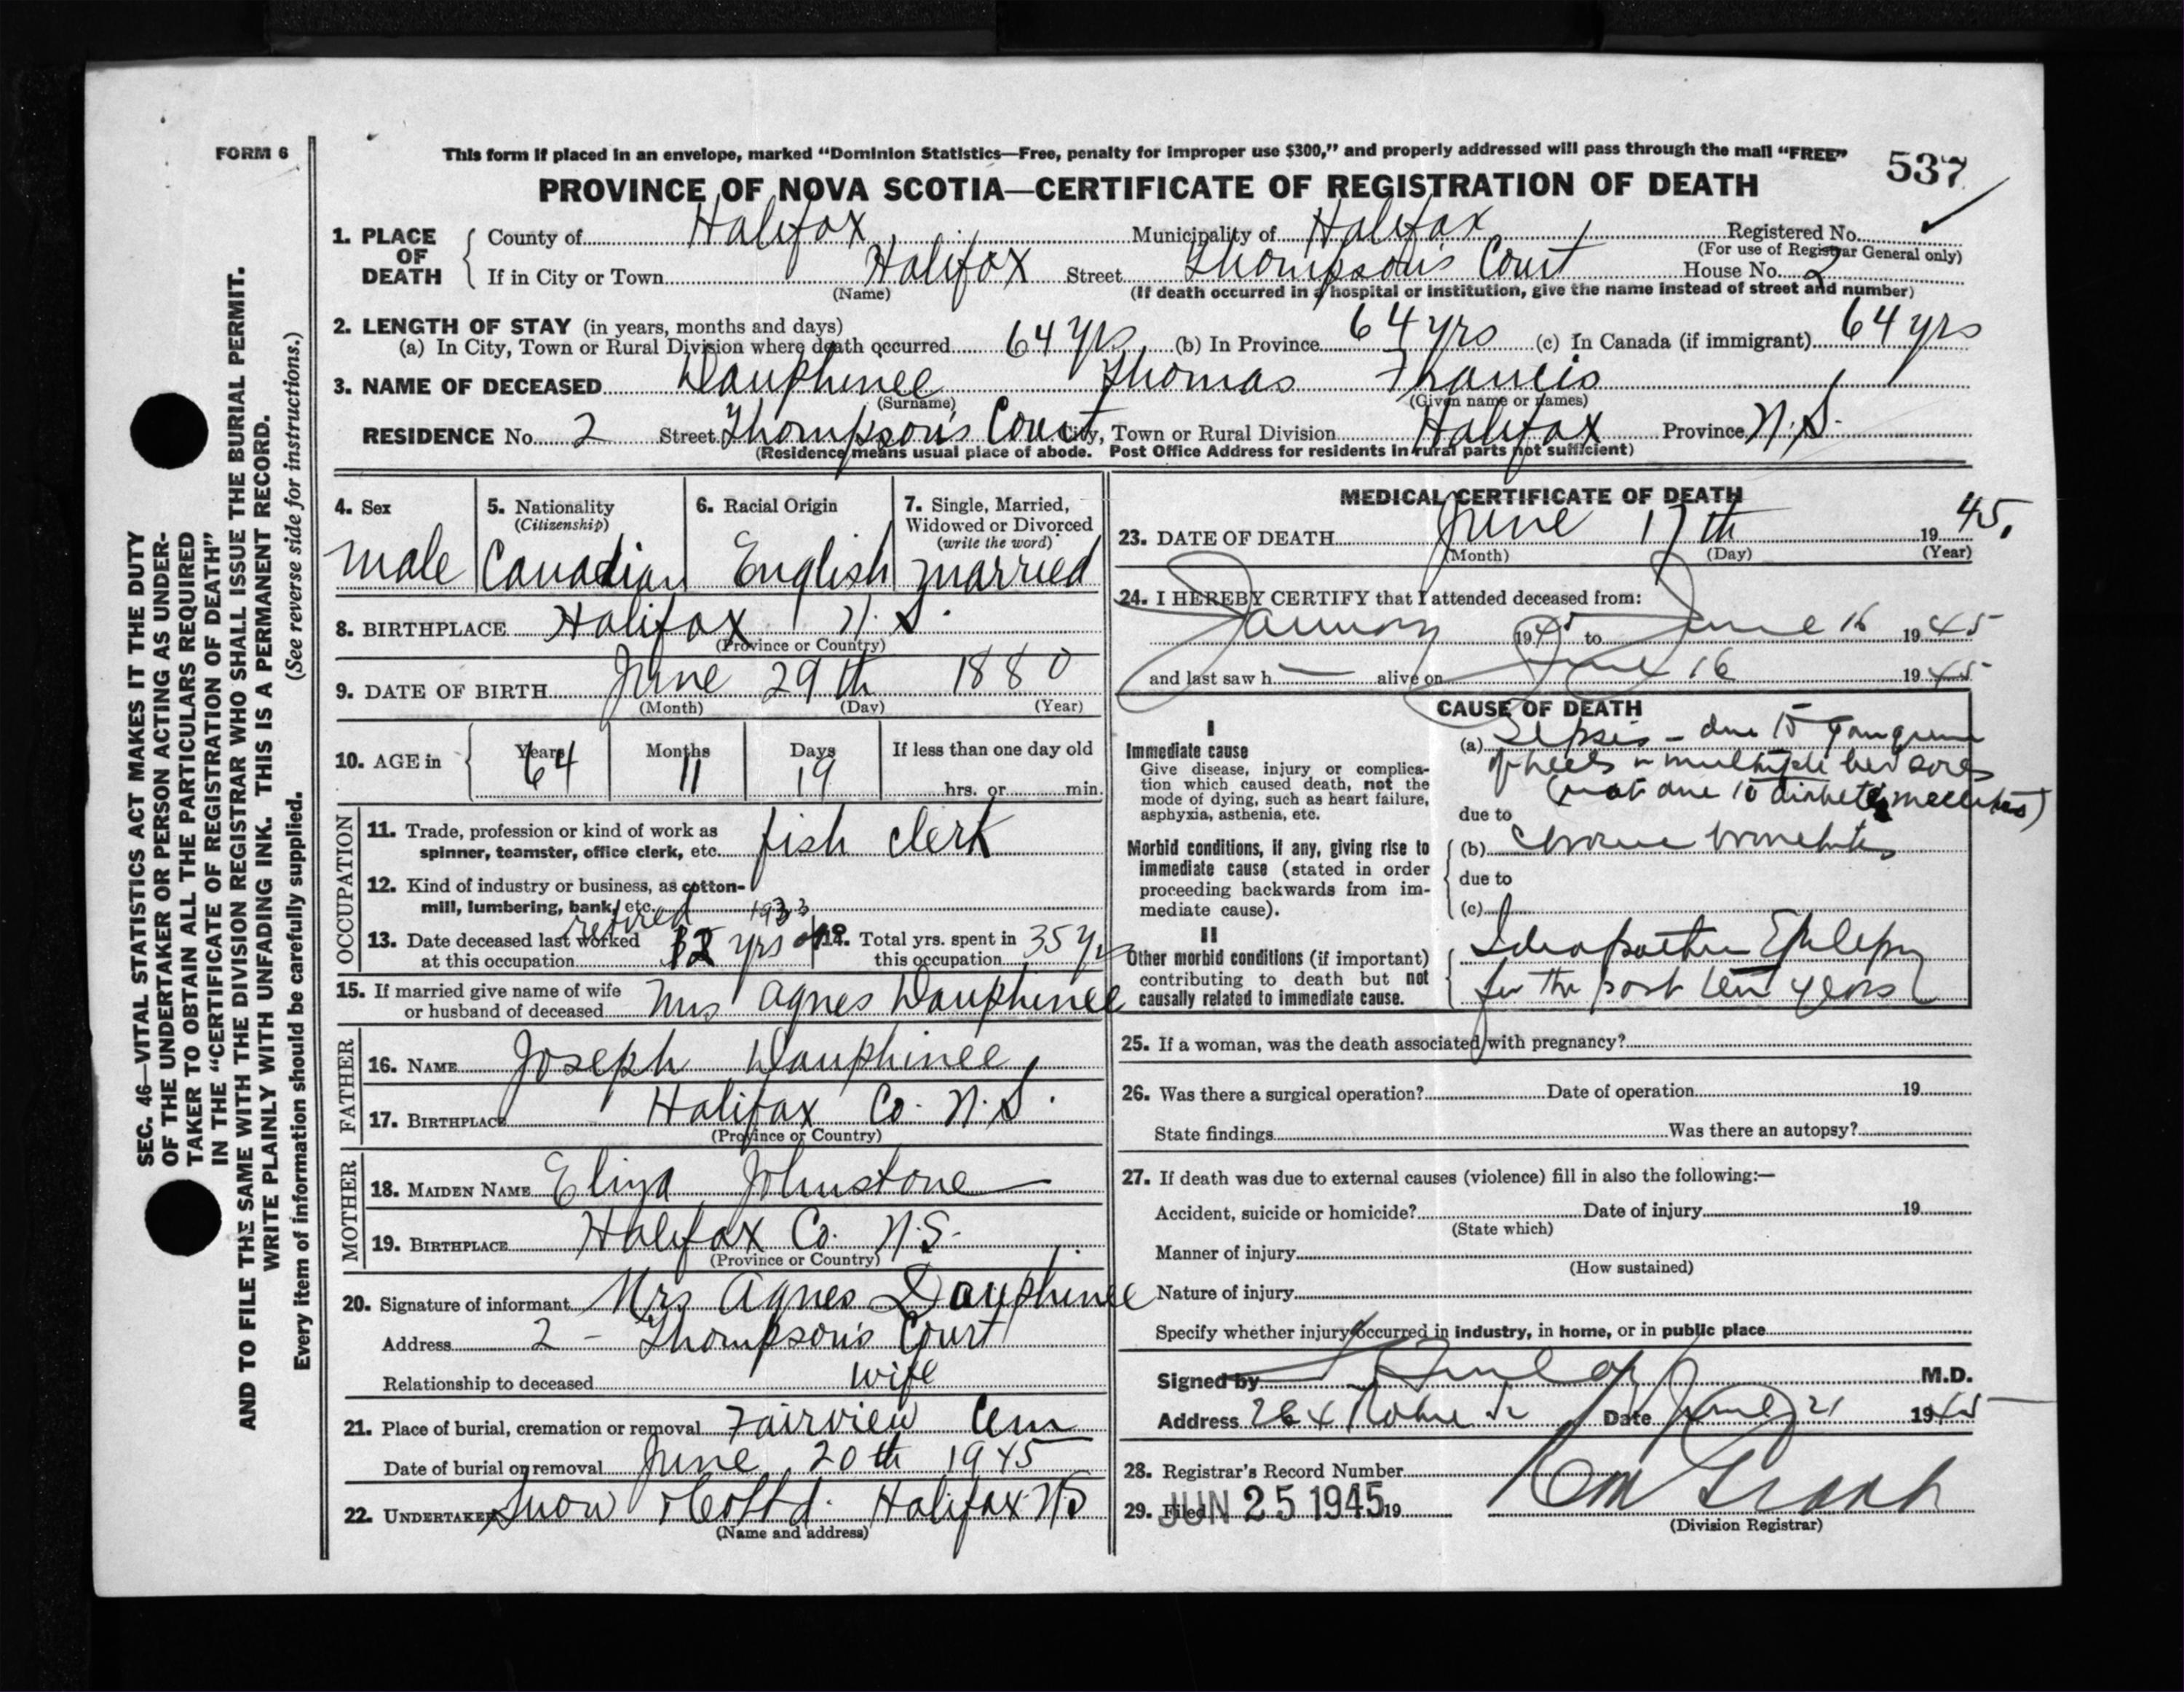 FORM 6
This form if placed in an envelope, marked “Dominion Statistics—Free, penalty for improper use $300,” and properly addressed will pass through the mail “FREE”
537
PROVINCE OF NOVA SCOTIA—CERTIFICATE OF REGISTRATION OF DEATH
1. PLACE OF DEATH { County of Halifax Municipality of Halifax Registered No. ✓
(For use of Registrar General only)
If in City or Town Halifax Street Thompson's Court House No. 2
(Name) (If death occurred in a hospital or institution, give the name instead of street and number)
2. LENGTH OF STAY (in years, months and days)
(a) In City, Town or Rural Division where death occurred 64 yrs (b) In Province 64 yrs (c) In Canada (if immigrant) 64 yrs
3. NAME OF DECEASED Dauphinee Thomas Francis
(Surname) (Given name or names)
RESIDENCE No. 2 Street Thompson's Court City, Town or Rural Division Halifax Province N.S.
(Residence means usual place of abode. Post Office Address for residents in rural parts not sufficient)
4. Sex
male
5. Nationality
(Citizenship)
Canadian
6. Racial Origin
English
7. Single, Married,
Widowed or Divorced
(write the word)
married
8. BIRTHPLACE Halifax N.S.
(Province or Country)
9. DATE OF BIRTH June 29th 1880
(Month) (Day) (Year)
10. AGE in { Years 64 Months 11 Days 19 If less than one day old
hrs. or min.
OCCUPATION
11. Trade, profession or kind of work as
spinner, teamster, office clerk, etc. fish clerk
12. Kind of industry or business, as cotton-
mill, lumbering, bank, etc.
retired 1933
13. Date deceased last worked
at this occupation 12 yrs ago
14. Total yrs. spent in
this occupation 35 yrs
15. If married give name of wife
or husband of deceased Mrs Agnes Dauphinee
FATHER
16. NAME Joseph Dauphinee
17. BIRTHPLACE Halifax Co. N.S.
(Province or Country)
MOTHER
18. MAIDEN NAME Eliza Johnstone
19. BIRTHPLACE Halifax Co. N.S.
(Province or Country)
20. Signature of informant Mrs Agnes Dauphinee
Address 2 - Thompson's Court
Relationship to deceased wife
21. Place of burial, cremation or removal Fairview Cem
Date of burial or removal June 20th 1945
22. UNDERTAKER Snow & Co Ltd. Halifax NS
(Name and address)
MEDICAL CERTIFICATE OF DEATH
23. DATE OF DEATH June 17th 1945.
(Month) (Day) (Year)
24. I HEREBY CERTIFY that I attended deceased from:
January 1945 to June 16 1945
and last saw h— alive on June 16 1945
CAUSE OF DEATH
I
Immediate cause
Give disease, injury or complica-
tion which caused death, not the
mode of dying, such as heart failure,
asphyxia, asthenia, etc.
(a) Sepsis - due to gangrene
of heels & multiple bed sores
(not due to diabetes mellitus)
due to
Morbid conditions, if any, giving rise to
immediate cause (stated in order
proceeding backwards from im-
mediate cause).
(b) Chronic bronchitis
due to
(c)
II
Other morbid conditions (if important)
contributing to death but not
causally related to immediate cause.
Idiopathic Epilepsy
for the past ten years
25. If a woman, was the death associated with pregnancy?
26. Was there a surgical operation? Date of operation 19
State findings Was there an autopsy?
27. If death was due to external causes (violence) fill in also the following:—
Accident, suicide or homicide? Date of injury 19
(State which)
Manner of injury
(How sustained)
Nature of injury
Specify whether injury occurred in industry, in home, or in public place
Signed by M.D.
Address 264 Robie St Date June 21 1945
28. Registrar's Record Number
29. Filed JUN 25 1945 19
(Division Registrar)
SEC. 46—VITAL STATISTICS ACT MAKES IT THE DUTY
OF THE UNDERTAKER OR PERSON ACTING AS UNDER-
TAKER TO OBTAIN ALL THE PARTICULARS REQUIRED
IN THE “CERTIFICATE OF REGISTRATION OF DEATH”
AND TO FILE THE SAME WITH THE DIVISION REGISTRAR WHO SHALL ISSUE THE BURIAL PERMIT.
WRITE PLAINLY WITH UNFADING INK. THIS IS A PERMANENT RECORD.
Every item of information should be carefully supplied. (See reverse side for instructions.)